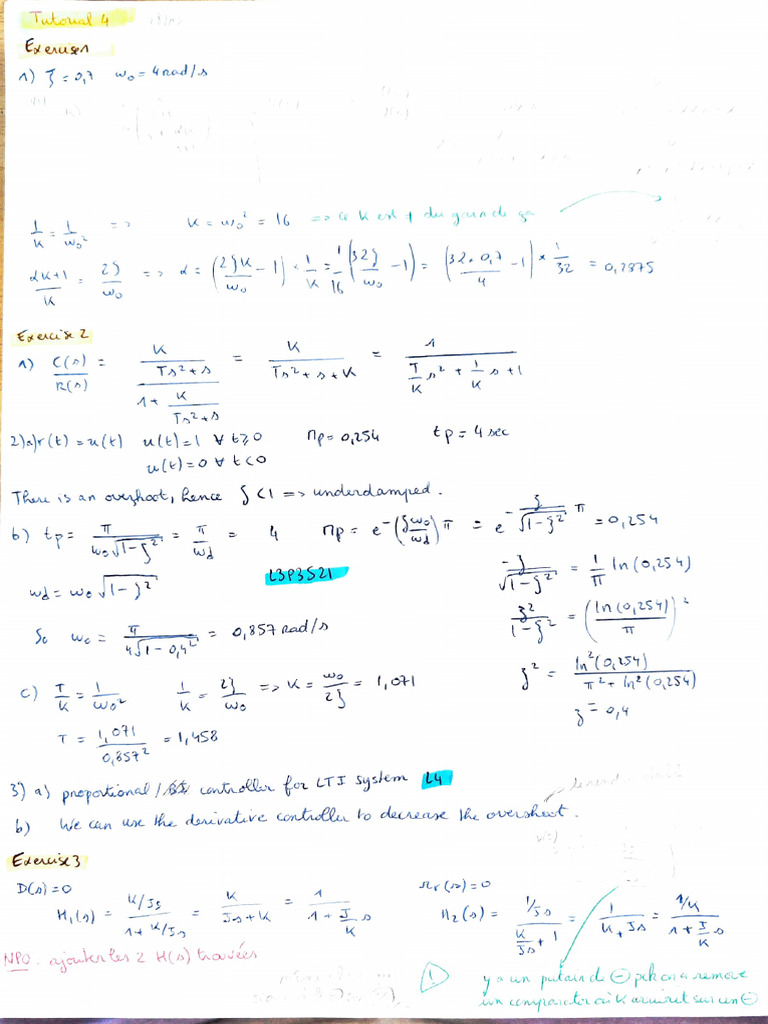 Tutorial 4
Exercise 1
1) ξ = 0,7 ω₀ = 4 rad/s
1/K = 1/ω₀² => K = ω₀² = 16 => ce K est + du gain de
(αK+1)/K = 2ξ/ω₀ => α = (2ξK/ω₀ - 1) · 1/K = 1/16 (32ξ/ω₀ - 1) = (32 · 0,7/4 - 1) × 1/32 = 0,2875
Exercise 2
1) C(s)/R(s) = (K/(Ts²+s))/(1 + K/(Ts²+s)) = K/(Ts²+s+K) = 1/(T/K s² + 1/K s + 1)
2) a) r(t) = u(t) u(t) = 1 ∀ t ≥ 0 Mp = 0,254 tp = 4 sec
u(t) = 0 ∀ t < 0
There is an overshoot, hence ξ < 1 => underdamped.
b) tp = π/(ω₀√(1-ξ²)) = π/ωd = 4 Mp = e^-(ξω₀/ωd)π = e^(-ξ/√(1-ξ²) π) = 0,254
-ξ/√(1-ξ²) = 1/π ln(0,254)
L3P3S21
ωd = ω₀√(1-ξ²)
ξ²/(1-ξ²) = (ln(0,254)/π)²
So ω₀ = π/(4√(1-0,4²)) = 0,857 rad/s
ξ² = ln²(0,254)/(π² + ln²(0,254))
ξ = 0,4
c) T/K = 1/ω₀² 1/K = 2ξ/ω₀ => K = ω₀/2ξ = 1,071
T = 1,071/0,857² = 1,458
3) a) proportional / controller for LTI system L4
b) We can use the derivative controller to decrease the overshoot.
Exercise 3
D(s) = 0
H₁(s) = (K/Js)/(1 + K/Js) = K/(Js+K) = 1/(1 + J/K s)
Ωr(s) = 0
H₂(s) = (1/Js)/(K/Js + 1) = 1/(K + Js) = (1/K)/(1 + J/K s)
NPO : ajouter les 2 H(s) trouvées
! y a un putain de ⊖ pck on a remove
un comparator où K arrivait sur un ⊖